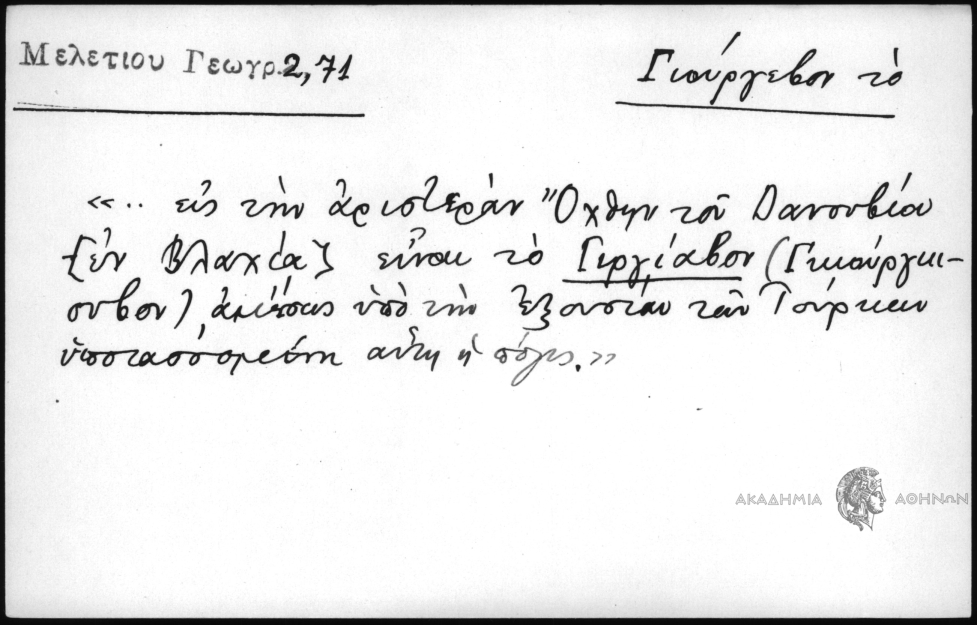 Μελετιου Γεωγρ. 2,71
Γιούργεβον τὸ
«.. εἰς τὴν ἀριστερὰν Ὄχθην τοῦ Δανουβίου
[ἐν Βλαχίᾳ] εἶναι τὸ Γιργίαβον (Γκιούργκι-
ουβον), ὑπὸ τὴν ἐξουσίαν τῶν Τούρκων
ὑποτασσομένη αὕτη ἡ πόλις.»
ΑΚΑΔΗΜΙΑ ΑΘΗΝΩΝ